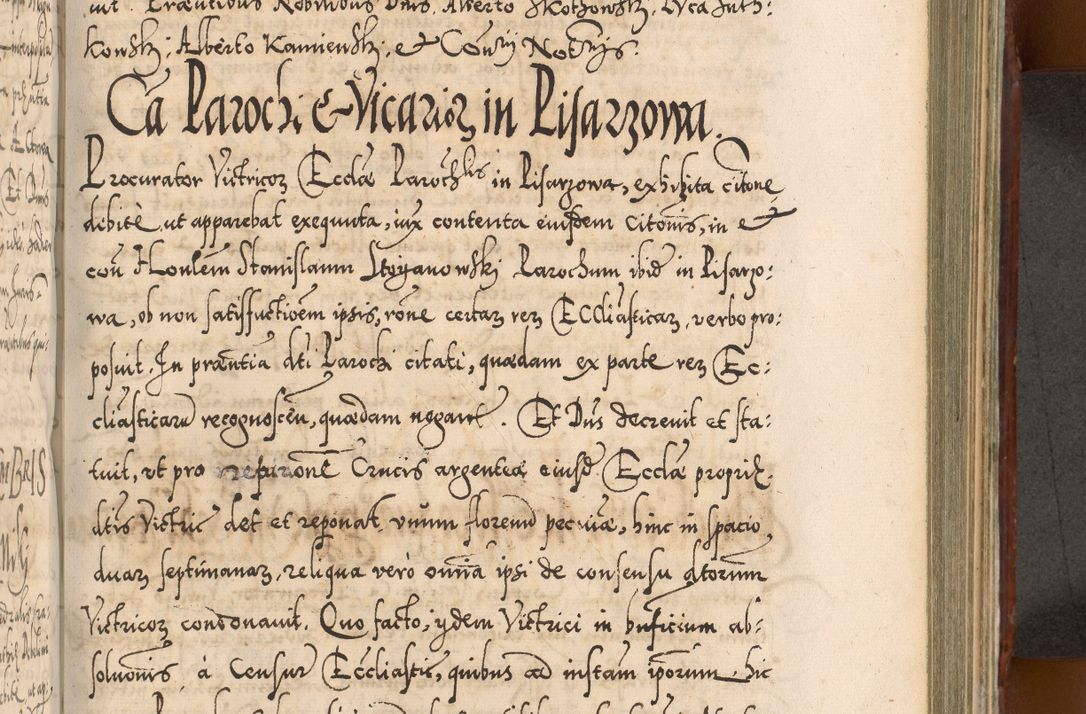 kowskj: Alberto Kamienskj, et Coūrij Notrijs.
Ca Parochi & Vicarior in Pisarzowa.
Procurator Victricoꝝ Ecclæ Parochlis in Pisarzowa, exhibita citone
debitè, ut apparebat exequuta, iux contenta eiusdem citonis, in et
con Honlem Stanislaum Stoyanowskj Parochum ibid in Pisarzo:
wa, ob non satisfactioem ipsis, rone certaꝝ reꝝ Ecclīasticaꝝ, verbo pro-
posuit. In præntia dti Parochi citati, quædam ex parte reꝝ Ec:
cliasticarū recognoscen, quædam negant. Et Dns decrevit et sta:
tuit, ut pro reparone Crucis argenteæ eiusd Ecclæ propris
dtis Victric det et reponat unum florenū pecuiæ, hinc in spacio
duaꝝ septimanaꝝ, reliqua verò omnia ipsi de consensu dtorum
Victricoꝝ condonavit. Quo facto, ijdem Victrici in bnficium ab:
solvonis à Censur Ecclīastic, quibus ad instam ipsorum hic